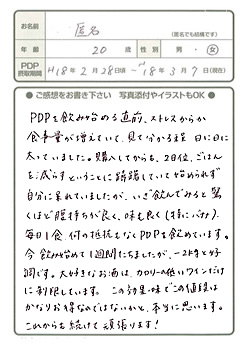 お名前 匿名
(匿名でも結構です)
年齢 20 歳 性別 男・女
PDP摂取期間 H18年2月28日頃〜H18年3月7日(現在)
●ご感想をお書き下さい 写真添付やイラストもOK●
PDPを飲み始める直前、ストレスからか
食事量が増えていて、見て分かる程 日に日に
太っていました。購入してからも、20日位、ごはん
を減らすということに躊躇していて始められず
自分に呆れていましたが、いざ飲んでみると驚
くほど腹持ちが良く、味も良く(特にバナナ)、
毎日1食、何の抵抗もなくPDPを飲めています。
今飲み始めて1週間たちましたが、-2kgと好
調です。大好きなお酒は、カロリーの低いワインだけ
に制限しています。この効果・味でこの値段は
かなりお得なのではないかと、本当に思います。
これからも続けて頑張ります!